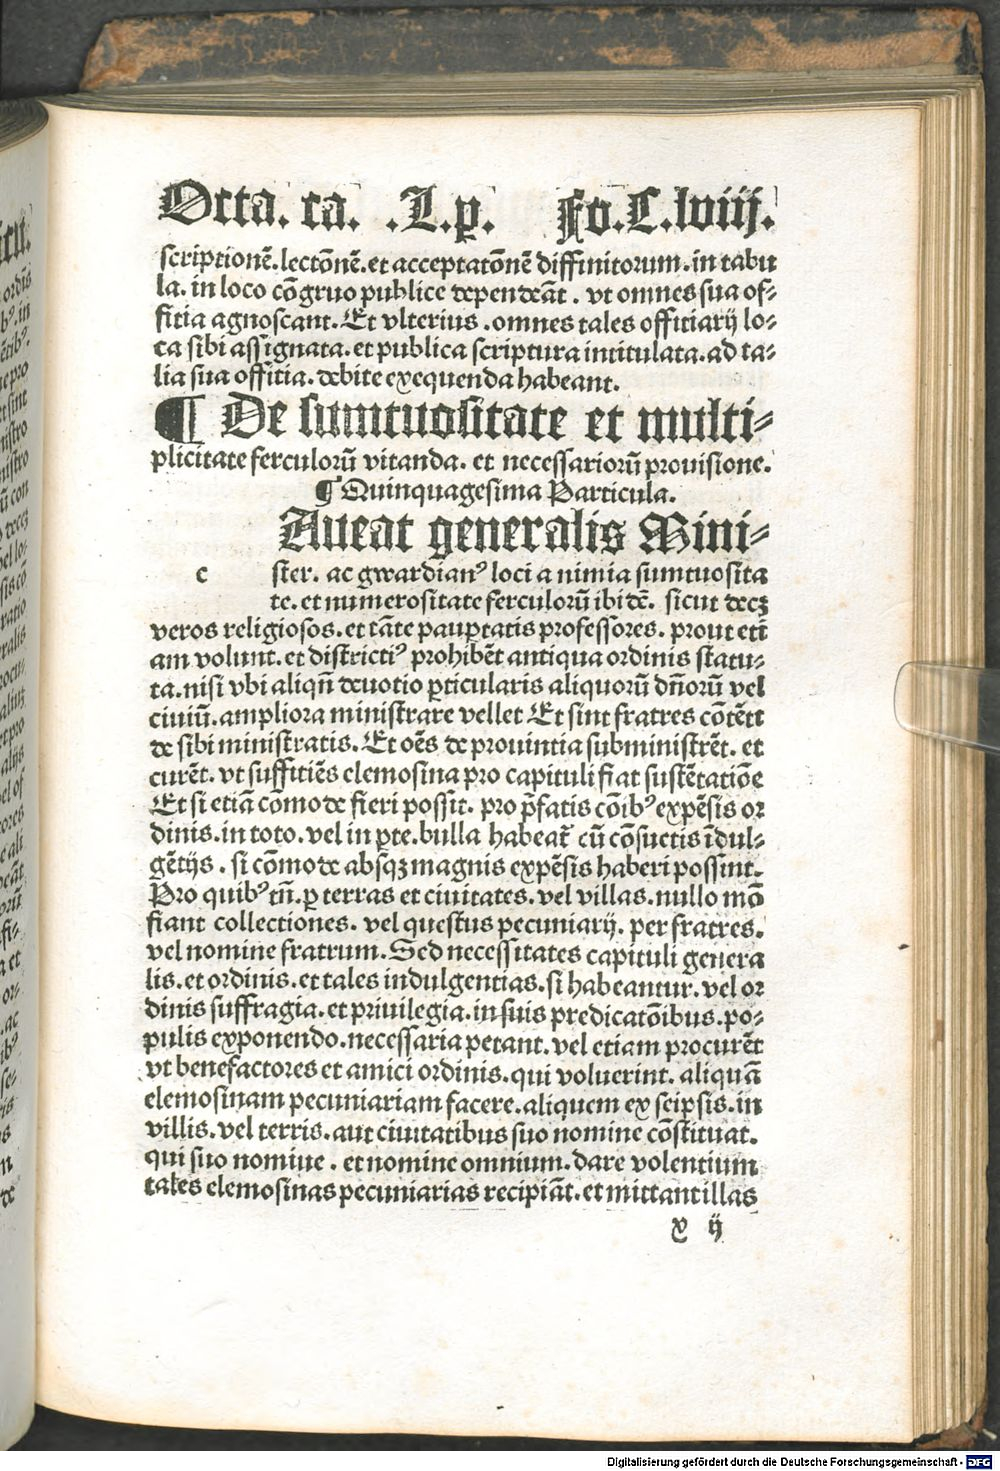 Octa. ca. .L.p. Fo.C.lviij.
scriptionē.lectōnē.et acceptatōnē diffinitorum.in tabu
la. in loco cōgruo publice dependeāt. vt omnes sua of-
fitia agnoscant. Et vlterius .omnes tales offitiarij lo-
ca sibi assignata.et publica scriptura intitulata.ad ta-
lia sua offitia.debite exequenda habeant.
¶ De sumtuositate et multi-
plicitate ferculorū vitanda. et necessariorū prouisione.
¶ Quinquagesima Particula.
Aueat generalis Mini-
c ster. ac gwardianꝰ loci a nimia sumtuosita
te. et numerositate ferculorū ibidē. sicut decꝫ
veros religiosos.et tāte paup̱tatis professores. prout eti
am volunt.et districtiꝰ prohibēt antiqua ordinis statu-
ta.nisi vbi aliqn̄ deuotio p̱ticularis aliquorū dn̄orū vel
ciuiū.ampliora ministrare vellet Et sint fratres cōtēti
de sibi ministratis. Et oēs de prouintia subministrēt. et
curēt. vt suffitiēs elemosina pro capituli fiat sustētatiōe
Et si etiā cōmode fieri possit. pro p̄fatis cōibꝰ expēsis or
dinis.in toto.vel in p̱te.bulla habeat̄ cū cōsuctis īdul-
gētijs . si cōmode absq̄ꝫ magnis expēsis haberi possint.
Pro quibꝰ tn̄.p̱ terras et ciuitates.vel villas.nullo mō
fiant collectiones. vel questus pecuniarij. per fratres.
vel nomine fratrum. Sed necessitates capituli genera
lis.et ordinis.et tales indulgentias.si habeantur.vel or
dinis suffragia.et priuilegia.in suis predicatōibus.po-
pulis exponendo.necessaria petant.vel etiam procurēt
vt benefactores et amici ordinis.qui voluerint. aliquā
elemosinam pecuniariam facere.aliquem ex seipsis.in
villis.vel terris.aut ciuitatibus suo nomine cōstituat.
qui suo nomine . et nomine omnium.dare volentium
tales elemosinas pecuniarias recipiāt.et mittant illas
x ij
Digitalisierung gefördert durch die Deutsche Forschungsgemeinschaft - DFG